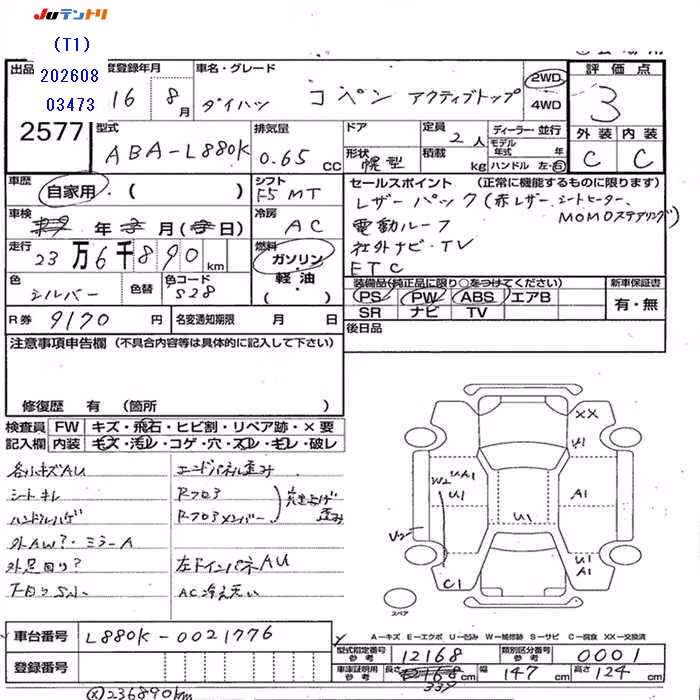 Juテントリ
(T1)
202608
03473
出品
2577
度登録年月
16 8月
車名・グレード
ダイハツ コペン アクティブトップ
2WD
4WD
評価点
3
外装 内装
C C
型式
ABA-L880K
排気量
0.65 cc
ドア
形状 幌型
定員 2人
積載 kg
ディーラー・並行
モデル年式 年
ハンドル 左・右
車歴
自家用・( )
シフト
F5 MT
車検
年 月( 日)
冷房
AC
走行
23万6千890km
燃料
ガソリン・
軽油
・( )
色
シルバー
色替
色コード
S28
R券 9170 円
名変通知期限 月 日
セールスポイント (正常に機能するものに限ります)
レザーパック(赤レザー、シートヒーター、
MOMOステアリング)
電動ルーフ
社外ナビ・TV
ETC
装備品(純正品に限り○をつけてください)
PS PW ABS エアB
SR ナビ TV
新車保証書
有・無
後日品
注意事項申告欄(不具合内容等は具体的に記入して下さい)
修復歴 有 (箇所 )
検査員 FW キズ・飛石・ヒビ割・リペア跡・×要
記入欄 内装 キズ・汚レ・コゲ・穴・スレ・キレ・破レ
各小キズAU
シートキレ
ハンドルハゲ
外AW?・ミラーA
外足回り?
エンドパネル歪み
Rフロア
Rフロアメンバー
突き上げ
歪み
左ドインパネAU
AC冷え
XX
U1
W2
UA1
U1
A1
U1
U2
C1
U1
A1
スペア
A-キズ E-エクボ U-凹み W-補修跡 S-サビ C-腐食 XX-交換済
車台番号 L880K-0021776
登録番号
型式指定番号
参考
12168
類別区分番号
参考
0001
車庫証明用
参考
長さ 339 cm 幅 147 cm 高さ 124 cm
(X)236890km